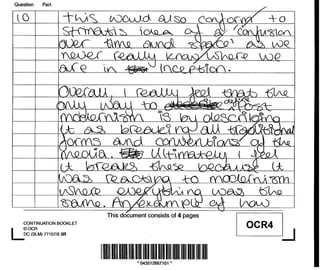 Question Part
10 this would also conform to
Strinatis idea of a 'confusion
over time and space' as we
never really know where we
are in Inception.
Overall, I really feel that the
only way to define post
modernism is by describing
it as breaking all traditional
forms and conventions of the
media. Ultimately I feel
it breaks these because it
was reacting to modernism
where everything was the
same. An example of how
This document consists of 4 pages
CONTINUATION BOOKLET
© OCR
DC (SLM) 77107/6 3R
OCR4
* 043512667101 *